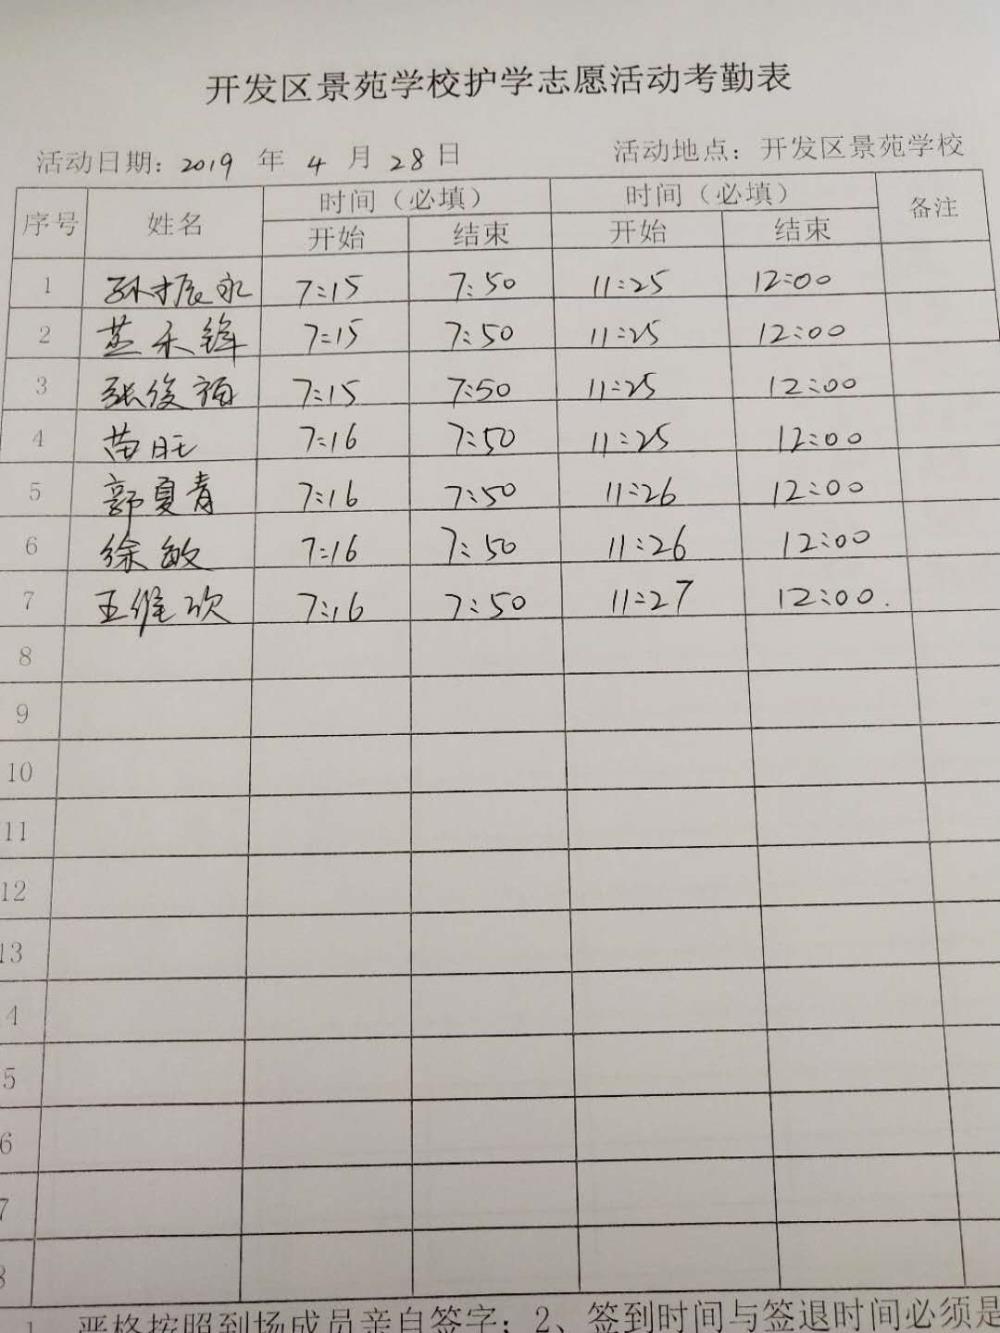 开发区景苑学校护学志愿活动考勤表
活动日期：2019 年 4 月 28 日 活动地点：开发区景苑学校
序号 姓名 时间（必填） 时间（必填） 备注
开始 结束 开始 结束
1 孙振永 7:15 7:50 11:25 12:00
2 燕禾锋 7:15 7:50 11:25 12:00
3 张俊福 7:15 7:50 11:25 12:00
4 苗旺 7:16 7:50 11:25 12:00
5 郭夏青 7:16 7:50 11:26 12:00
6 徐敏 7:16 7:50 11:26 12:00
7 王维欣 7:16 7:50 11:27 12:00.
8
9
10
11
12
13
4
5
6
7
8
1、严格按照到场成员亲自签字；2、签到时间与签退时间必须是